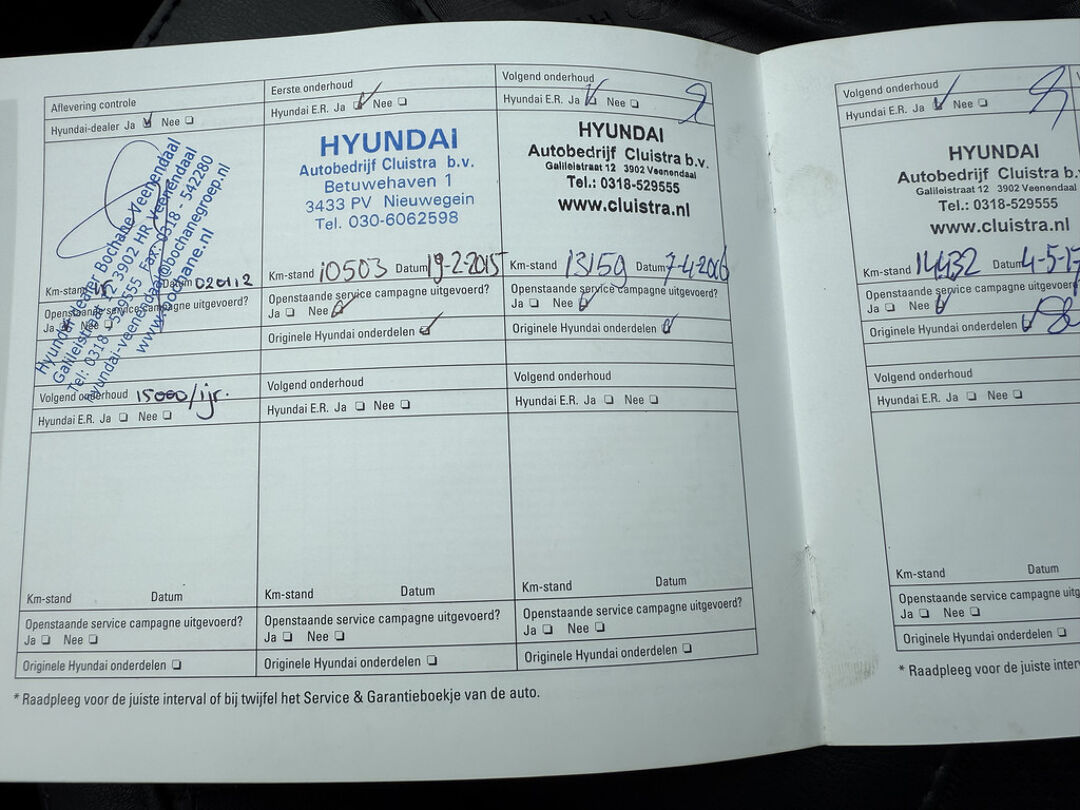 Aflevering controle
Hyundai-dealer Ja Nee
Hyundai-dealer Bochane Veenendaal
Galileistraat 12 3902 HR Veenendaal
Tel: 0318 - 529555 Fax: 0318 - 542280
hyundai-veenendaal@bochanegroep.nl
www.bochane.nl
Km-stand Datum 020112
Openstaande service campagne uitgevoerd?
Ja Nee
Volgend onderhoud 15000/1jr.
Hyundai E.R. Ja Nee
Km-stand Datum
Openstaande service campagne uitgevoerd?
Ja Nee
Originele Hyundai onderdelen
Eerste onderhoud
Hyundai E.R. Ja Nee
HYUNDAI
Autobedrijf Cluistra b.v.
Betuwehaven 1
3433 PV Nieuwegein
Tel. 030-6062598
Km-stand 10503 Datum 19-2-2015
Openstaande service campagne uitgevoerd?
Ja Nee
Originele Hyundai onderdelen
Volgend onderhoud
Hyundai E.R. Ja Nee
Km-stand Datum
Openstaande service campagne uitgevoerd?
Ja Nee
Originele Hyundai onderdelen
Volgend onderhoud
Hyundai E.R. Ja Nee
HYUNDAI
Autobedrijf Cluistra b.v.
Galileistraat 12 3902 Veenendaal
Tel.: 0318-529555
www.cluistra.nl
Km-stand 13159 Datum 7-4-2016
Openstaande service campagne uitgevoerd?
Ja Nee
Originele Hyundai onderdelen
Volgend onderhoud
Hyundai E.R. Ja Nee
Km-stand Datum
Openstaande service campagne uitgevoerd?
Ja Nee
Originele Hyundai onderdelen
* Raadpleeg voor de juiste interval of bij twijfel het Service & Garantieboekje van de auto.
Volgend onderhoud
Hyundai E.R. Ja Nee
HYUNDAI
Autobedrijf Cluistra b.v
Galileistraat 12 3902 Veenendaal
Tel.: 0318-529555
www.cluistra.nl
Km-stand 14432 Datum 4-5-17
Openstaande service campagne uitgevoerd
Ja Nee
Originele Hyundai onderdelen
Volgend onderhoud
Hyundai E.R. Ja Nee
Km-stand Datum
Openstaande service campagne uitg
Ja Nee
Originele Hyundai onderdelen
* Raadpleeg voor de juiste inter